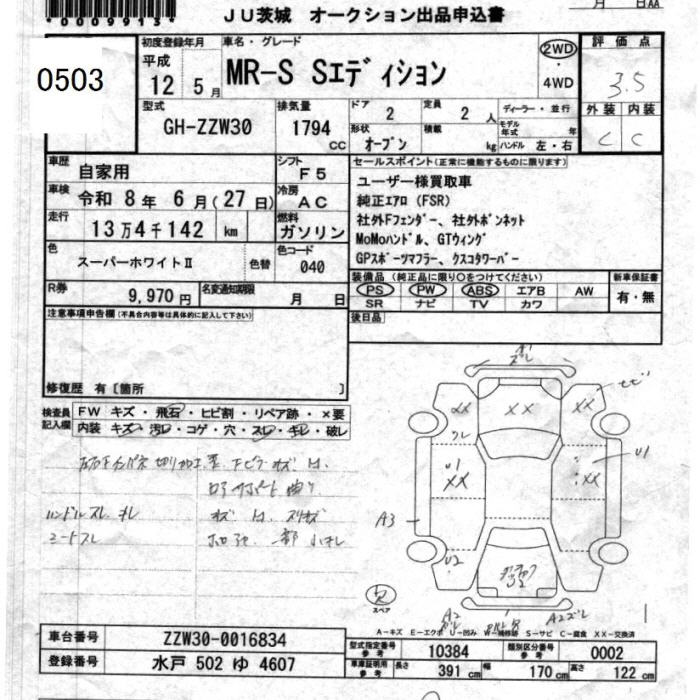 *0009913*
月 日AA
JU茨城 オークション出品申込書
0503
初度登録年月
平成
12 5月
車名・グレード
MR-S Sエディション
2WD
・
4WD
評価点
3.5
外装 内装
C C
型式
GH-ZZW30
排気量
1794 cc
ドア 2
定員 2人
形状 オープン
積載 kg
ディーラー・並行
モデル年式 年
ハンドル 左・右
車歴 自家用
シフト F5
車検 令和 8年 6月(27日)
冷房 AC
走行 13万4千142 km
燃料 ガソリン
色 スーパーホワイトⅡ 色替
色コード 040
R券 9,970円
名変通知期限 月 日
セールスポイント(正常に機能するものに限ります)
ユーザー様買取車
純正エアロ(FSR)
社外Fフェンダー、社外ボンネット
MoMoハンドル、GTウィング
GPスポーツマフラー、クスコタワーバー
装備品(純正品に限り○をつけてください)
PS PW ABS エアB AW
SR ナビ TV カワ
新車保証書
有・無
後日品
注意事項申告欄(不具合内容等は具体的に記入して下さい)
修復歴 有〔箇所 〕
検査員記入欄
FW キズ・飛石・ヒビ割・リペア跡・×要
内装 キズ・汚レ・コゲ・穴・スレ・キレ・破レ
ハンドルスレ キレ
シートスレ
XX
XX
XX
U1
XX
U1
XX
A3
U2
A2
A2ズレ
スペア
A-キズ E-エクボ U-凹み W-補修跡 S-サビ C-腐食 XX-交換済
車台番号 ZZW30-0016834
登録番号 水戸 502 ゆ 4607
型式指定番号参考 10384
類別区分番号参考 0002
車庫証明用参考 長さ 391 cm 幅 170 cm 高さ 122 cm